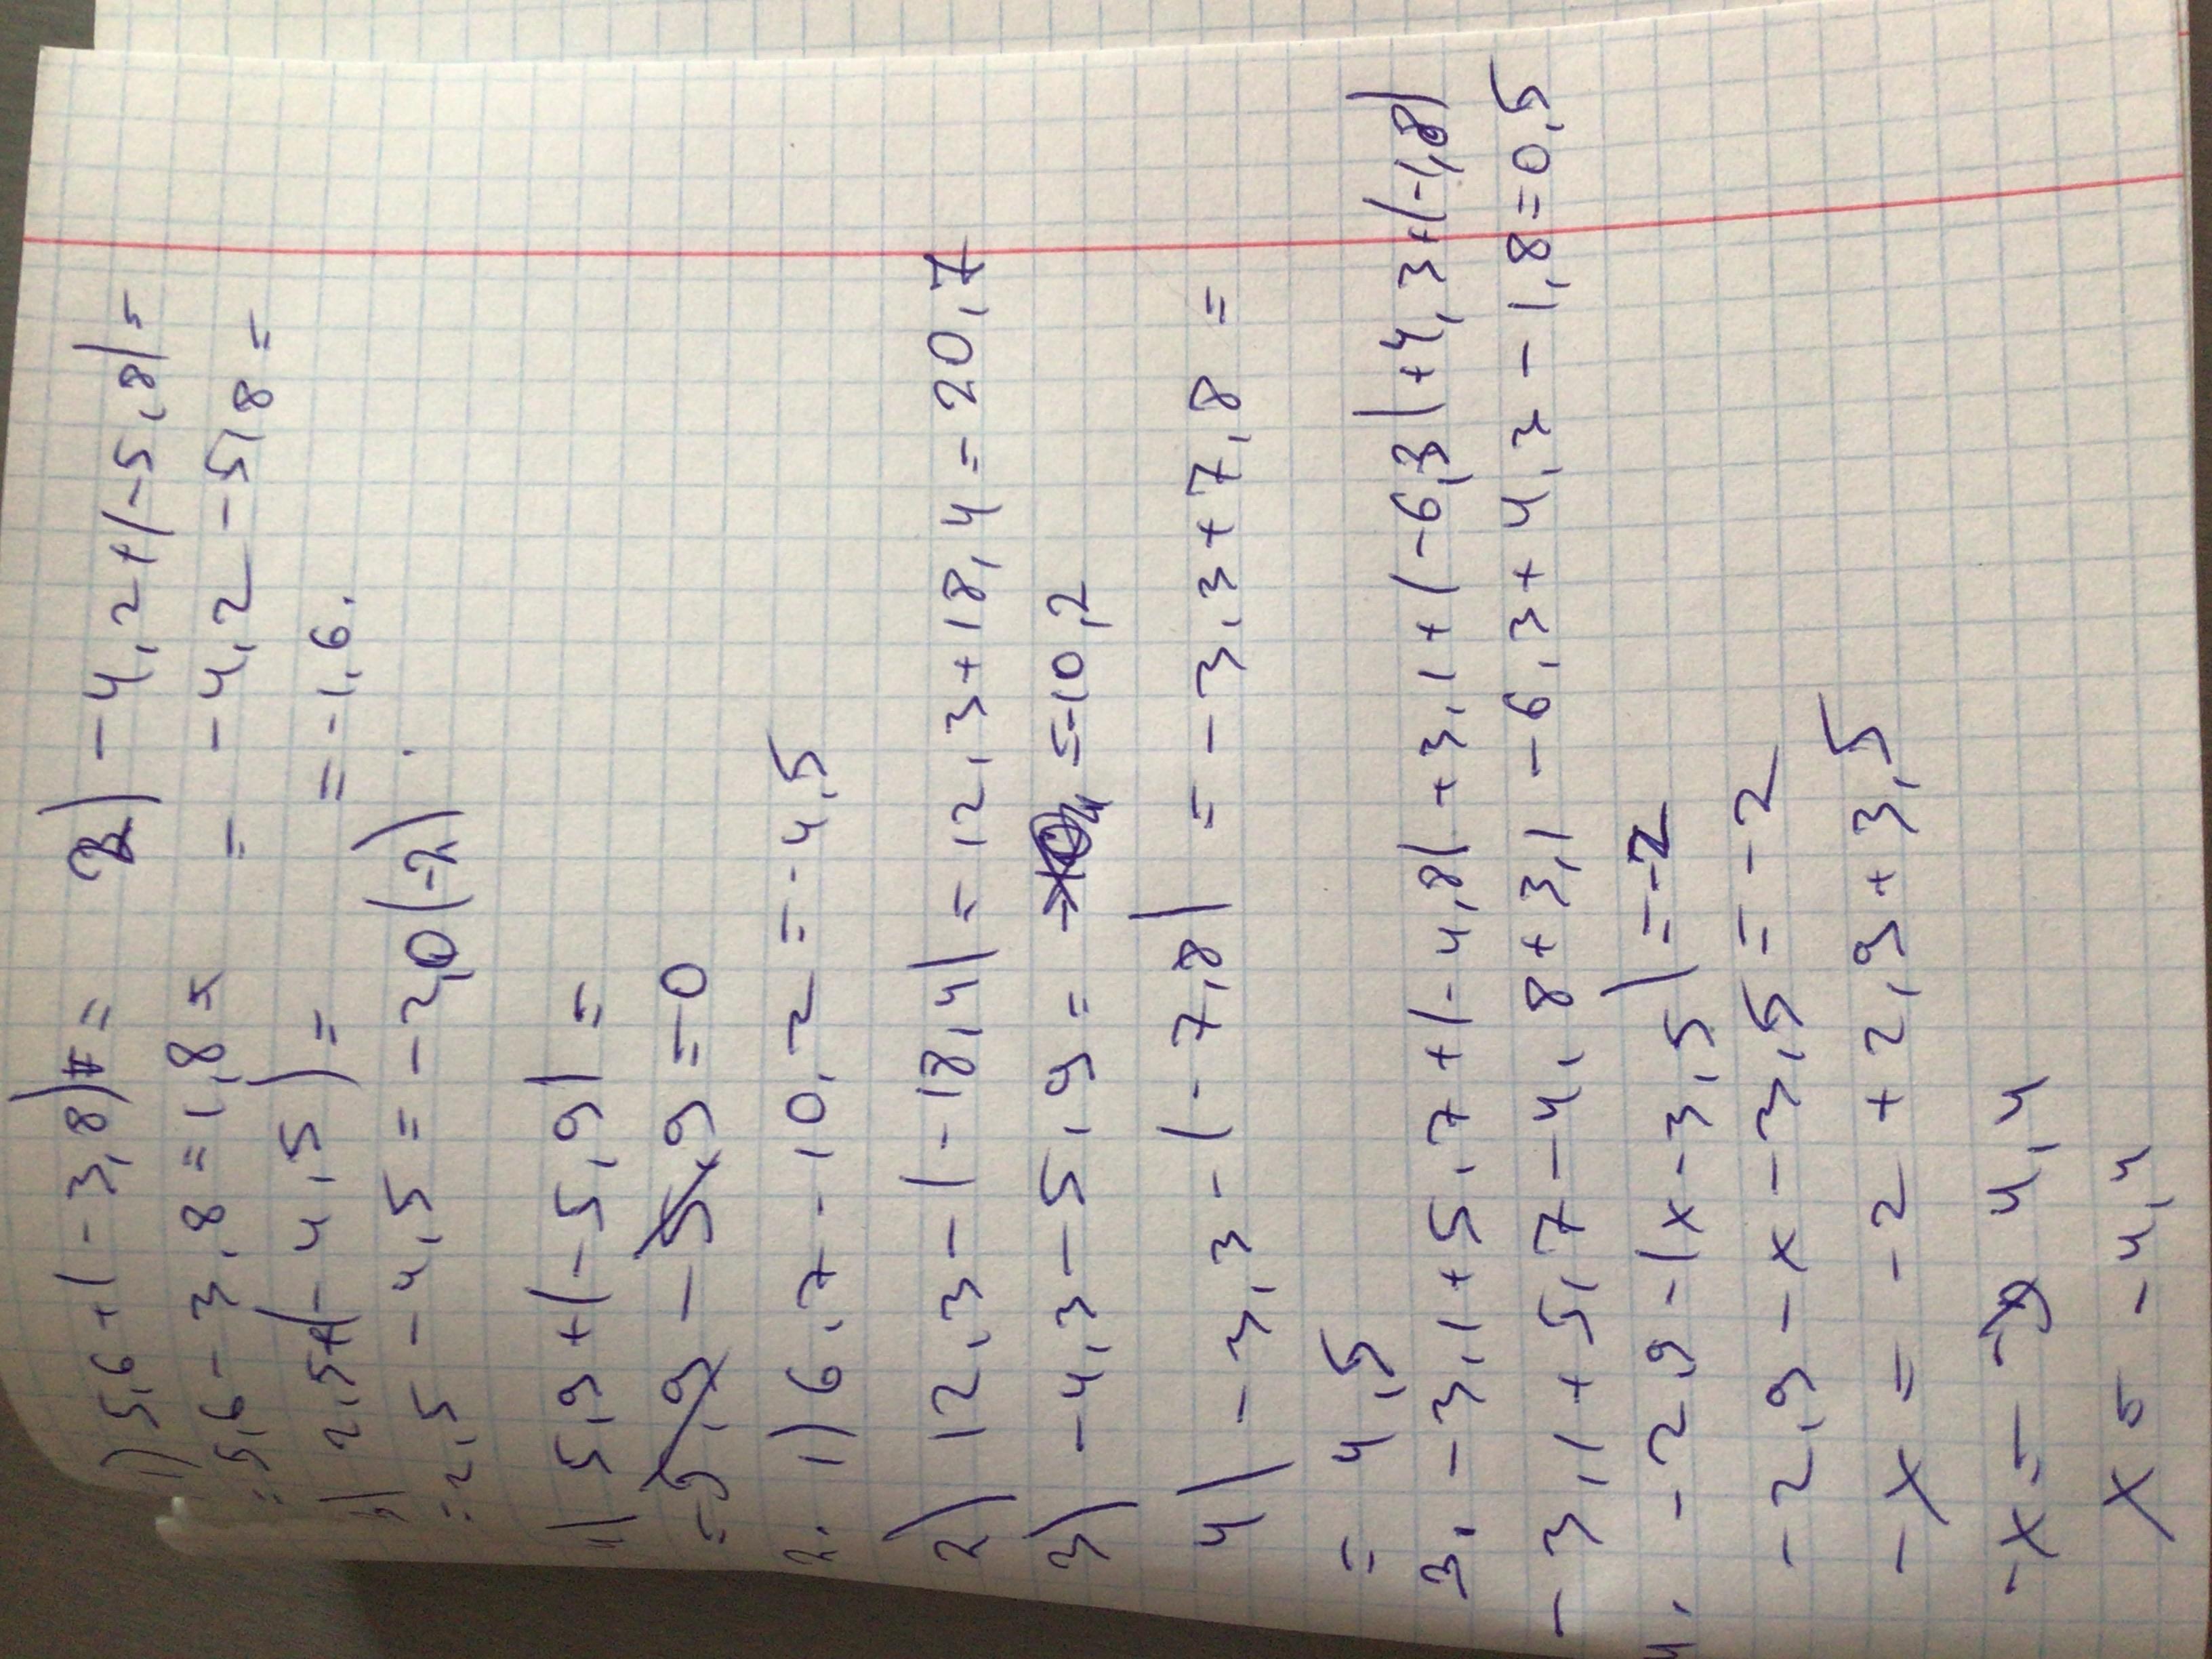 1) 5,6 + (-3,8) = 2) -4,2 + (-5,8) =
= 5,6 - 3,8 = 1,8 = - 4,2 - 5,8 =
2,5 + (-4,5) = = -1,6.
= 2,5 - 4,5 = -2,0 (-2)
4) 5,9 + (-5,9) =
= 5,9 - 5,9 = 0
2. 1) 6,7 - 10,2 = -4,5
2) 12,3 - (-18,4) = 12,3 + 18,4 = 20,7
3) -4,3 - 5,9 = = -10,2
4) -3,3 - (-7,8) = -3,3 + 7,8 =
= 4,5
3. -3,1 + 5,7 + (-4,8) + 3,1 + (-6,3) + 4,3 + (-1,8)
-3,1 + 5,7 - 4,8 + 3,1 - 6,3 + 4,2 - 1,8 = 0,5
4. -2,9 - (x - 3,5) = -2
-2,9 - x - 3,5 = -2
-x = -2 + 2,9 + 3,5
-x = 4,4
x = -4,4